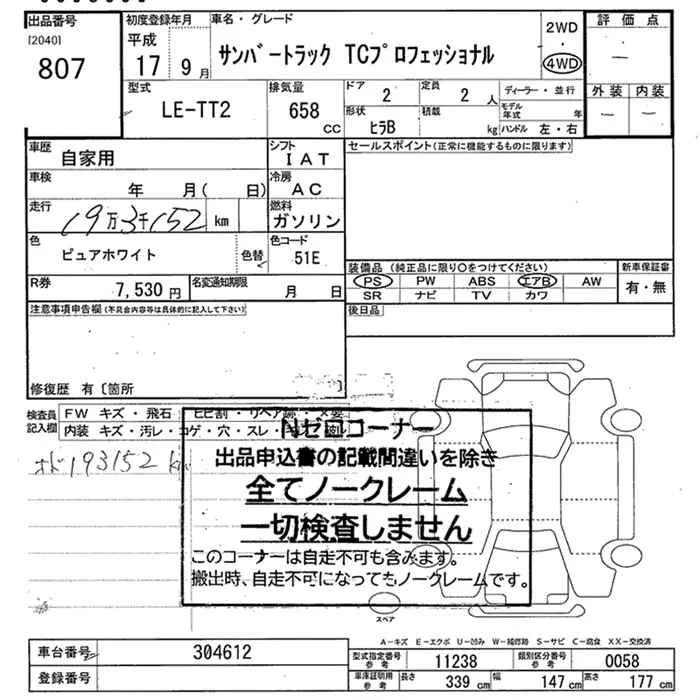 出品番号 初度登録年月 車名・グレード 2WD 評価点
[2040] 平成
807 17 9月 サンバートラック TCプロフェッショナル ・ 4WD ―
型式 排気量 ドア 2 定員 2 人 ディーラー・並行 外装 内装
LE-TT2 658 CC 形状 ヒラB 積載 kg モデル年式 年 ― ―
ハンドル 左・右
車歴 自家用 シフト IAT セールスポイント(正常に機能するものに限ります)
車検 年 月( 日) 冷房 AC
走行 19万3千152 km 燃料 ガソリン
色 ピュアホワイト 色替 色コード 51E
装備品 (純正品に限り○をつけてください) 新車保証書
R券 7,530 円 名変通知期限 月 日 PS PW ABS エアB AW 有・無
SR ナビ TV カワ
注意事項申告欄(不具合内容等は具体的に記入して下さい) 後日品
修復歴 有 〔箇所
検査員 記入欄 FW キズ・飛石 ヒビ割・リペア跡・✕要
内装 キズ・汚レ・コゲ・穴・スレ・
オド193152 km
Nゼロコーナー
出品申込書の記載間違いを除き
全てノークレーム
一切検査しません
このコーナーは自走不可も含みます。
搬出時、自走不可になってもノークレームです。
スペア
A-キズ E-エクボ U-凹み W-補修跡 S-サビ C-腐食 XX-交換済
車台番号 304612 型式指定番号 参考 11238 類別区分番号 参考 0058
登録番号 車庫証明用 参考 長さ 339 cm 幅 147 cm 高さ 177 cm